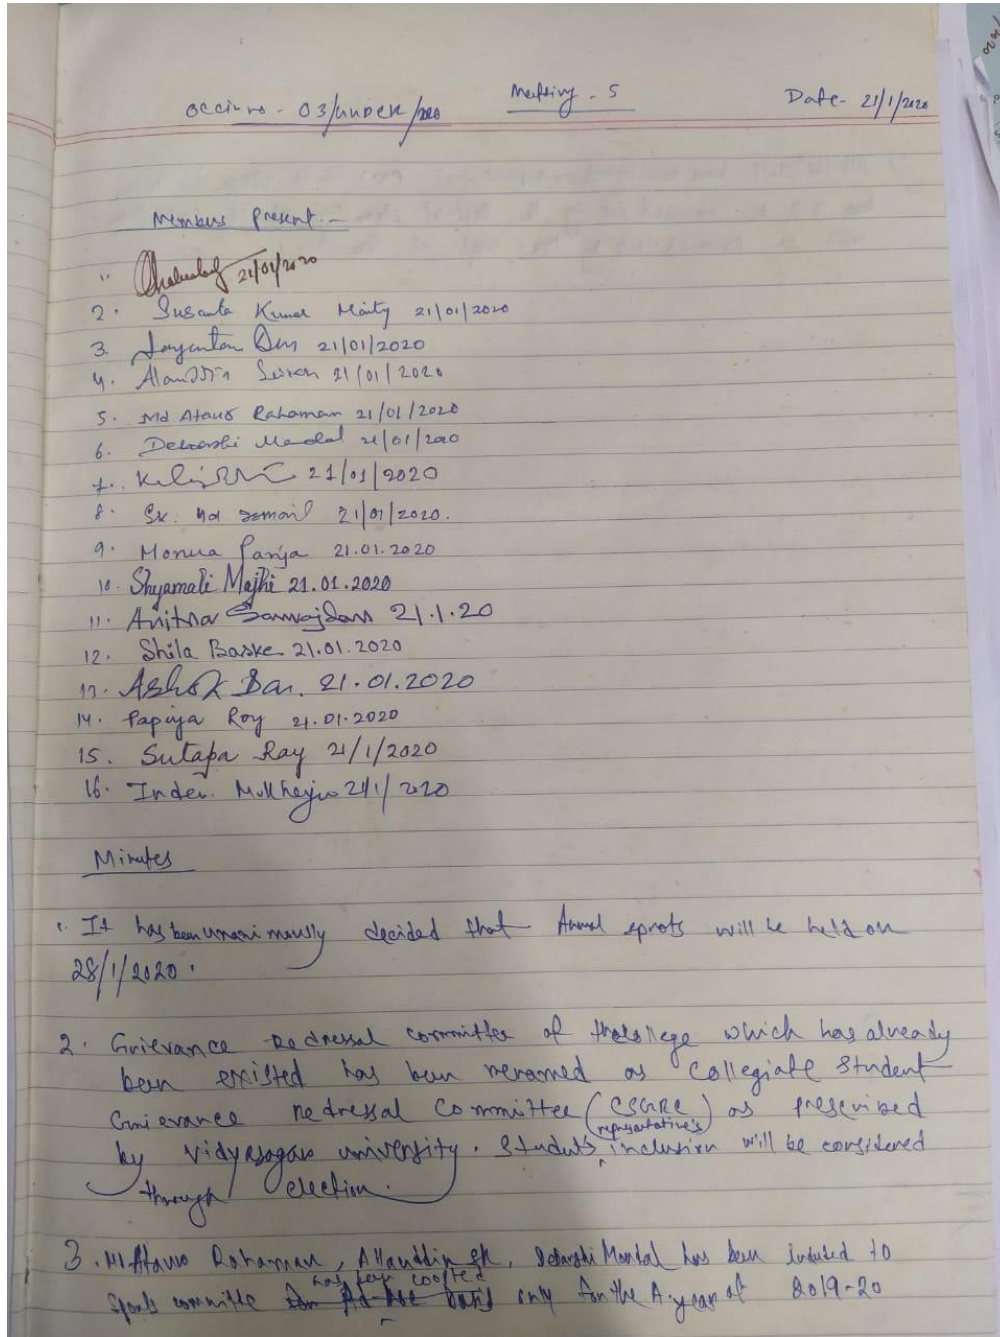 Meeting - 5
03/UNDER/2020
Date- 21/1/2020
Members Present:-
1. 21/01/2020
2. Susanta Kumar Maity 21/01/2020
3. 21/01/2020
4. 21/01/2020
5. Md Ataur Rahaman 21/01/2020
6. Debarshi Mandal 21/01/2020
7. 21/01/2020
8. Sk. Md Ismail 21/01/2020.
9. Monua Panja 21.01.2020
10. Shyamali Majhi 21.01.2020
11. 21.1.20
12. Shila Baske 21.01.2020
13. Ashok 21.01.2020
14. Papiya Roy 21.01.2020
15. Sutapa Ray 21/1/2020
16. 21/1/2020
Minutes
1. It has been unanimously decided that Annual sprots will be held on
28/1/2020.
2. Grievance Redressal committee of the college which has already
been existed has been renamed as Collegiate Student
Grievance redressal Committee (CSGRC) as prescribed
representative's
by Vidyasagar university. Students inclusion will be considered
through election.
3. Md Ataur Rahaman, Allauddin Sk, Debarshi Mandal has been included to
has been coopted
sports committe only for the A.year of 2019-20